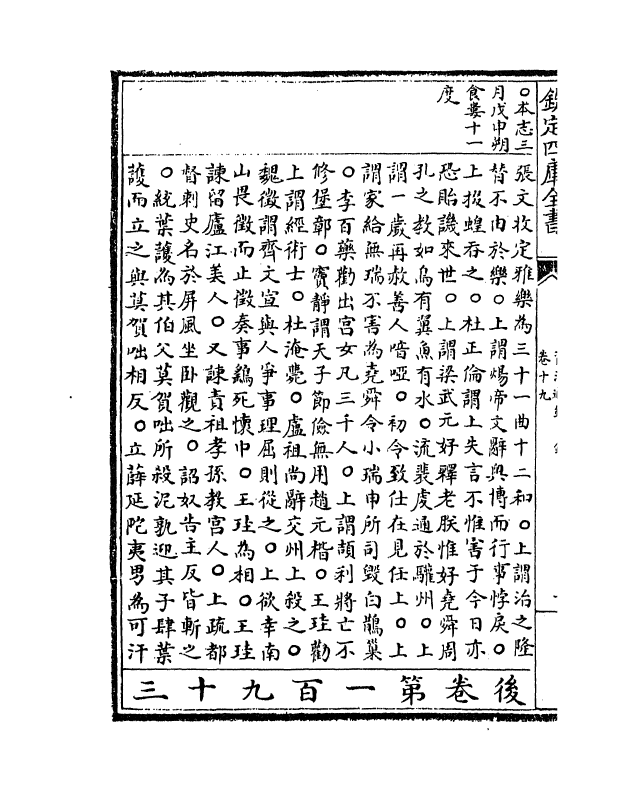 欽定四庫全書
卷十九
〇本志三
月戊申朔
食婁十一
度
張文收定雅樂為三十一曲十二和〇上謂治之隆
替不由於樂〇上謂煬帝文辭奧博而行事悖戾〇
上掇蝗吞之〇杜正倫謂上失言不惟害于今日亦
恐貽譏來世〇上謂梁武元好釋老朕惟好堯舜周
孔之教如鳥有翼魚有水〇流裴虔通於驩州〇上
謂一歲再赦善人喑啞〇初令致仕在見任上〇上
謂家給無瑞不害為堯舜令小瑞申所司毀白鵲巢
〇李百藥勸出宫女凡三千人〇上謂頡利將亡不
修堡鄣〇竇靜謂天子節儉無用趙元楷〇王珪勸
上謂經術士〇杜淹薨〇盧祖尚辭交州上殺之〇
魏徵謂齊文宣與人爭事理屈則從之〇上欲幸南
山畏徵而止徵奏事鷂死懷巾〇王珪為相〇王珪
諫留廬江美人〇又諫責祖孝孫教宫人〇上疏都
督刺史名於屏風坐卧觀之〇詔奴告主反皆斬之
〇統葉護為其伯父莫賀咄所殺泥孰迎其子肆葉
護而立之與莫賀咄相反〇立薛延陀夷男為可汗
後卷第一百九十三